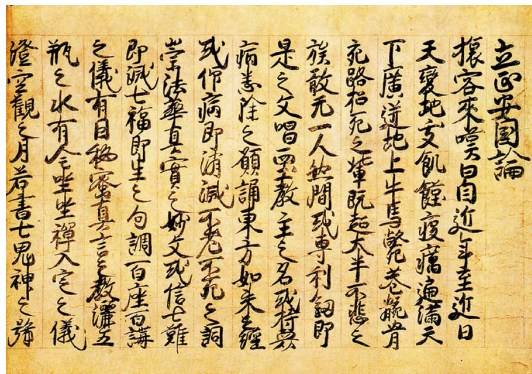 立正安国論
旅客來嘆曰自近年至近日
天變地夭飢饉疫癘遍滿天
下廣迸地上牛馬斃巷骸骨
充路招死之輩既超大半不悲之
族敢无一人然間或専利劔即
是之文唱西土教主之名或持衆
病悉除之願誦東方如来之經
或仰病即消滅不老不死之詞
崇法華真實之妙文或信七難
即滅七福即生之句調百座百講
之儀有因秘密真言之教灑五
瓶之水有全坐禪入定之儀
澄空觀之月若書七鬼神之號